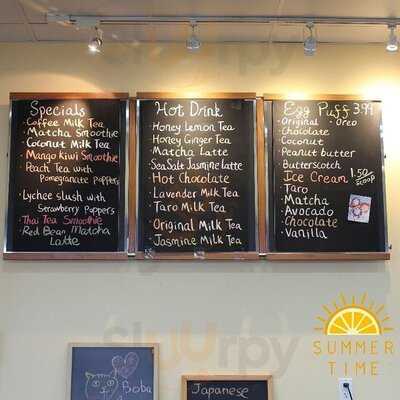 Specials
· Coffee Milk Tea
· Matcha Smoothie
Coconut Milk Tea
· Mango Kiwi Smoothie
Peach Tea with
Pomegranate poppers
· Lychee slush with
Strawberry Poppers
· Thai Tea Smoothie
· Red Bean Matcha
Latte
Hot Drink
· Honey Lemon Tea
· Honey Ginger Tea
· Matcha Latte
· Sea Salt Jasmine Latte
· Hot Chocolate
· Lavender Milk Tea
· Taro Milk Tea
· Original Milk Tea
· Jasmine Milk Tea
Egg Puff 3.99
· Original · Oreo
· Chocolate
· Coconut
· Peanut butter
· Butterscotch
Ice Cream 1.50/scoop
· Taro
· Matcha
· Avocado
· Chocolate
· Vanilla
Boba
Japanese
Slurrpy
SUMMER
TIME